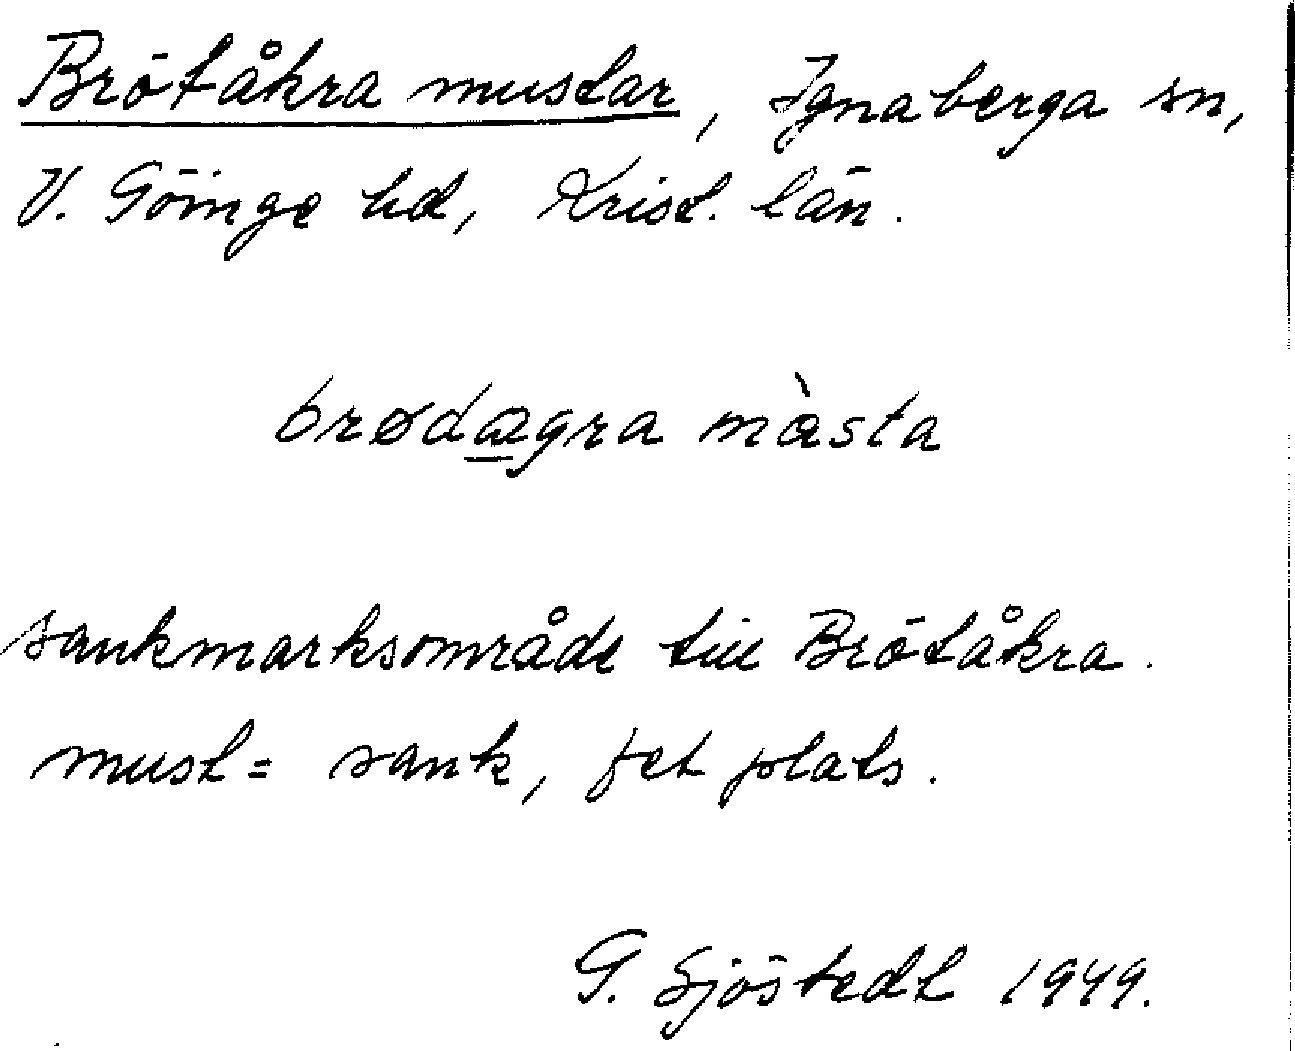 Brötåkra mustar, Ignaberga sn,
V. Göinge hd, Krist. län.
brødægra màsta
sankmarksområde till Brötåkra.
must = sank, fet plats.
G. Sjöstedt 1949.